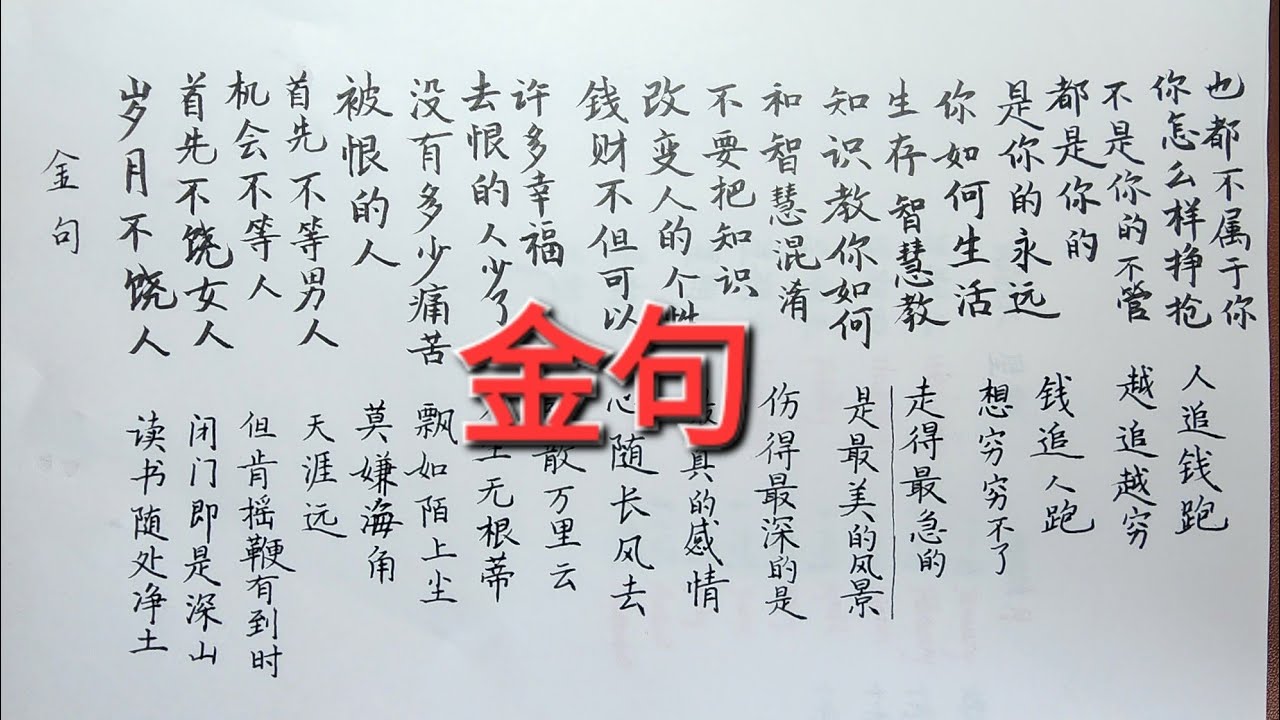 金句
岁月不饶人
首先不饶女人
机会不等人
首先不等男人
被恨的人
没有多少痛苦
去恨的人少了
许多幸福
钱财不但可以
改变人的个性
不要把知识
和智慧混淆
知识教你如何
生存智慧教
你如何生活
是你的永远
都是你的
不是你的不管
你怎么样挣抢
也都不属于你
人追钱跑
越追越穷
钱追人跑
想穷穷不了
走得最急的
是最美的风景
伤得最深的是
最真的感情
心随长风去
散万里云
人生无根蒂
飘如陌上尘
莫嫌海角
天涯远
但肯摇鞭有到时
闭门即是深山
读书随处净土
金句